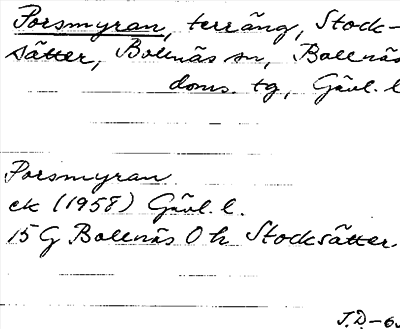 Porsmyran, terräng, Stock-
sätter, Bollnäs sn, Bollnäs
doms. tg, Gävl. l
Porsmyran
ek (1958) Gävl. l.
15 G Bollnäs 0 h Stocksätter.
J.D-6